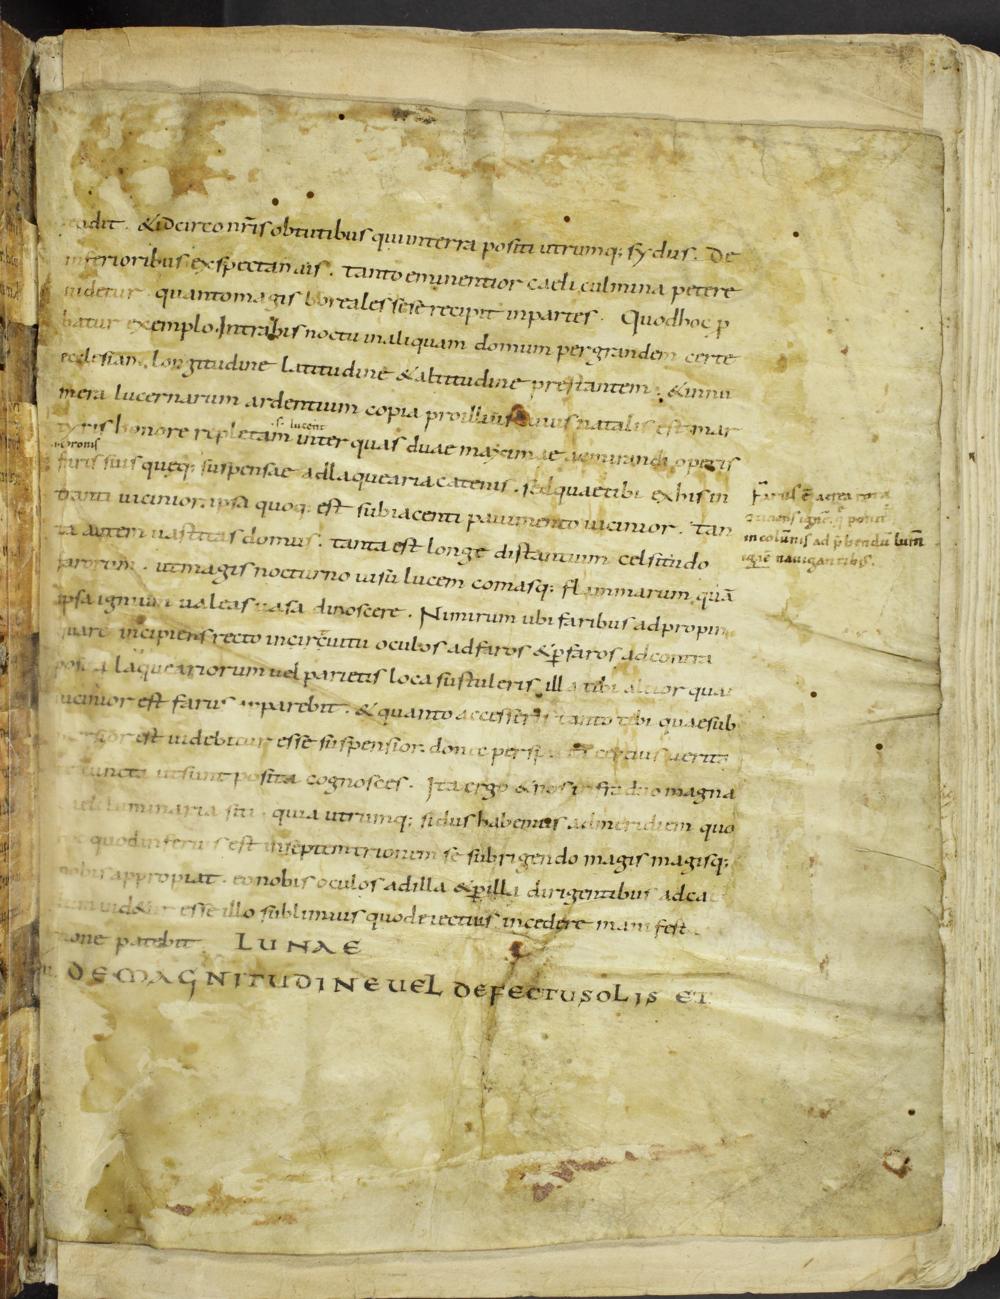 cadit. & idcirco nr̄is obtutibus qui in terra positi utrumq; sydus. De
inferioribus exspectamus. tanto eminentior caeli culmina petere
uidetur quanto magis boreales sese recipit in partes. Quod hoc ꝓ
batur exemplo. Intrabis noctu in aliquam domum pergrandem certe
ecclesiam longitudine latitudine & altitudine prestantem. & innu
mera lucernarum ardentium copia pro illius cuius natalis est mar
s. lucent
tyris honore repletam inter quas duae maximae admirandi operis
faris suis quęq; suspensae ad laquearia catenis. sed quae tibi ex his in
tranti uicinior. ipsa quoq; est subiacenti pauimento uicinior. Tan
ta autem uastitas domus. tanta est longe distantium celsitudo
farorum. ut magis nocturno uisu lucem comasq; flammarum quā
ipsa ignium ualeas uasa dinoscere. Nimirum ubi faribus adpropin
quare incipiens recto in circuitu oculos ad faros & ꝑ faros ad contra
posita laqueariorum uel parietis loca sustuleris illa tibi altior quae
uicinior est farus apparebit. & quanto accesseris tanto tibi quae sub
est uidebitur esse suspensior. donec
cuncta ut sunt posita cognosces. Ita ergo & nos magna
caeli luminaria siti. quia utrumq; sidus habemus ad meridiem quo
quod inferius est in septemtrionem se subrigendo magis magisq;
nobis appropiat. eo nobis oculos ad illa & ꝑ illa dirigentibus ad cae
lum uid&ur esse illo sublimius quod erectius incedere manifest
one patebit LUNAE
DE MAGNITUDINE UEL DEFECTU SOLIS ET
in colūnis ad
nauigantibus.